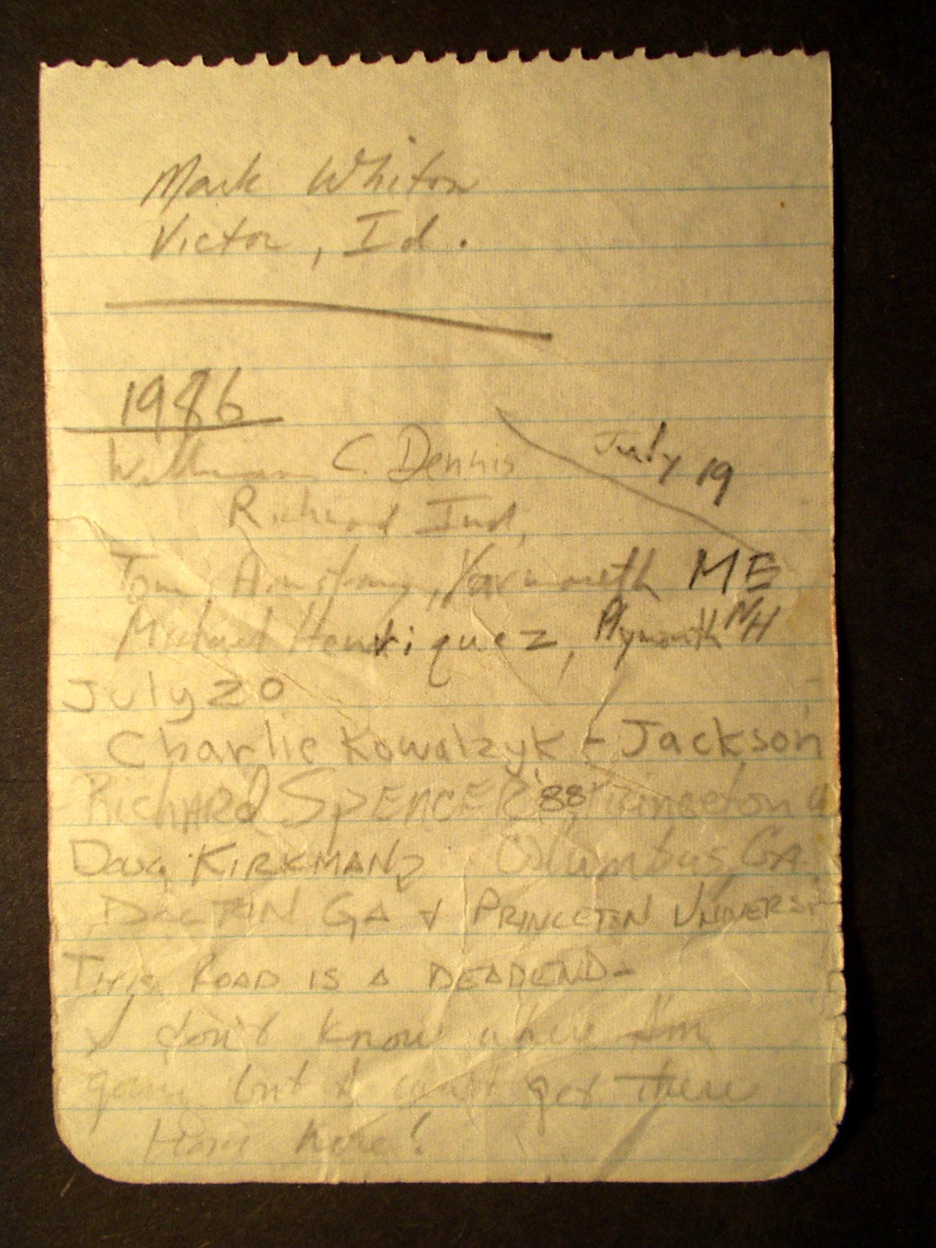 Mark Whiton
Victor, Id.
1986
July 19
William C. Dennis
Richmond Ind.
Tom Armstrong, Yarmouth ME
Michael Henriquez, Plymouth NH
July 20
Charlie Kowalzyk - Jackson
RICHARD SPENCER '88 Princeton U
DOUG KIRKMAN Columbus, GA
GA & PRINCETON UNIVERSI
THIS ROAD IS A DEADEND-
I don't know where I'm
goin but I can't get there
from here!